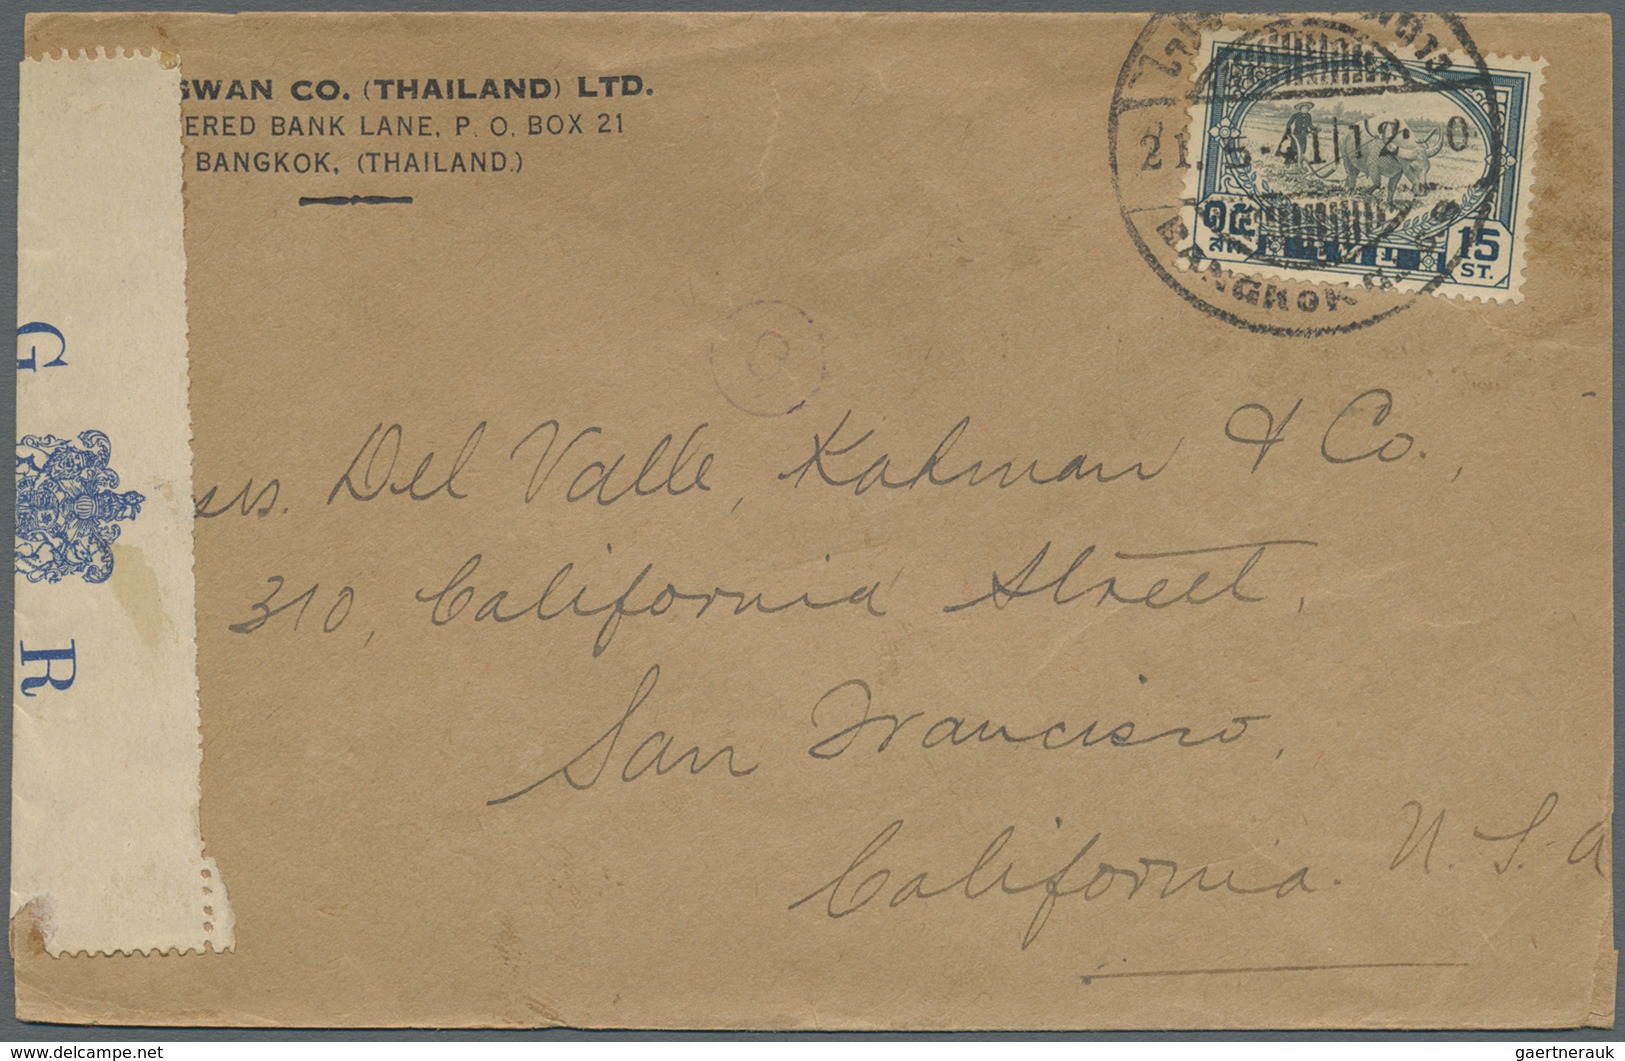 GWAN CO. (THAILAND) LTD.
ERED BANK LANE, P. O. BOX 21
BANGKOK, (THAILAND.)
21. 5.-41 12. 0
BANGKOK
๑๕
15
ST.
G R
srs. Del Valle, Kahman & Co.,
310, California Street,
San Francisco,
California. U. S. A
gaertnerauk